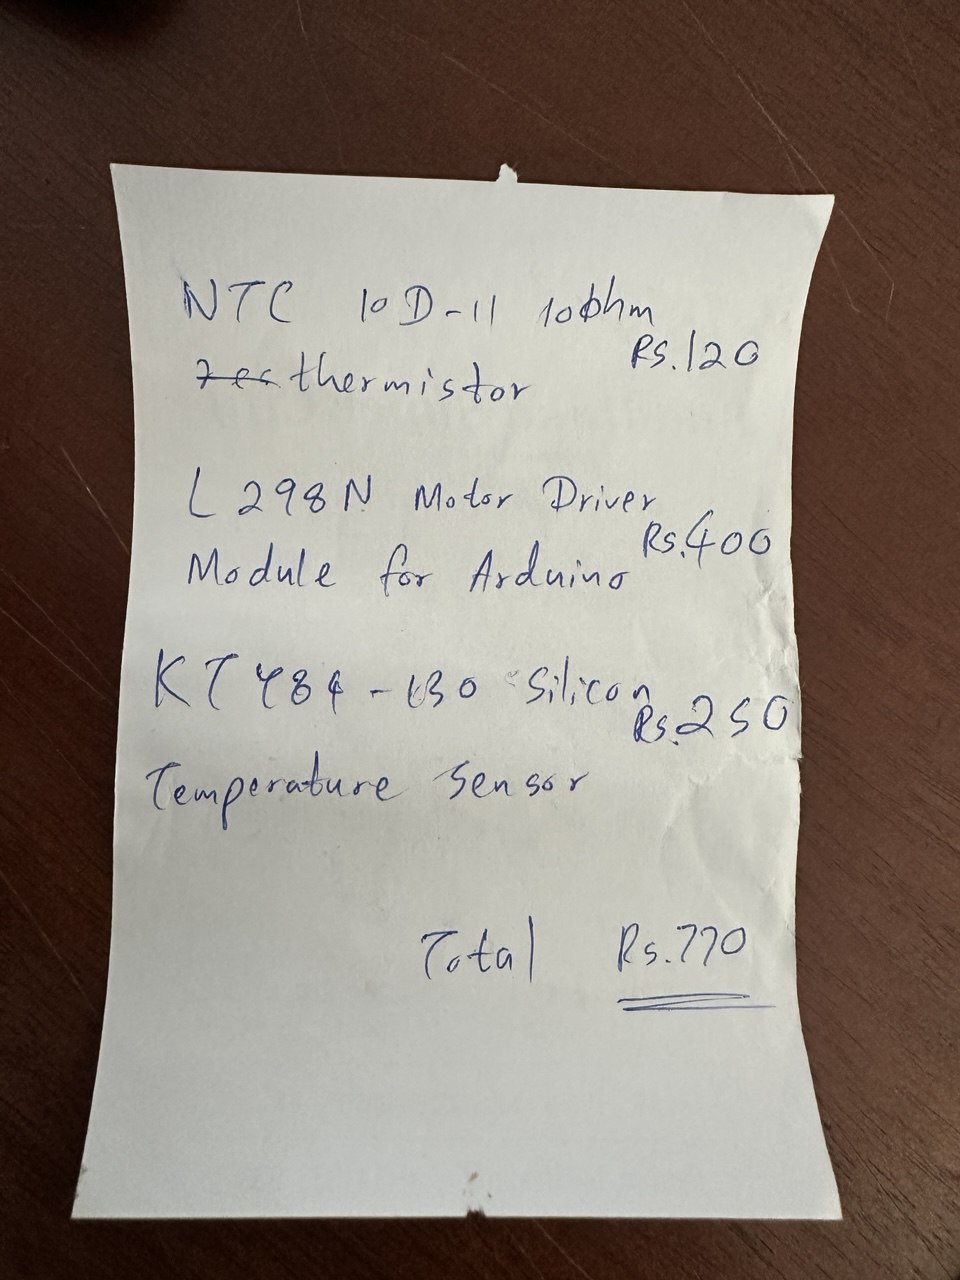 NTC 10D-11 10ohm
Rs.120
thermistor
L298N Motor Driver
Rs.400
Module for Arduino
KTY84-130 Silicon
Rs.250
Temperature Sensor
Total Rs.770